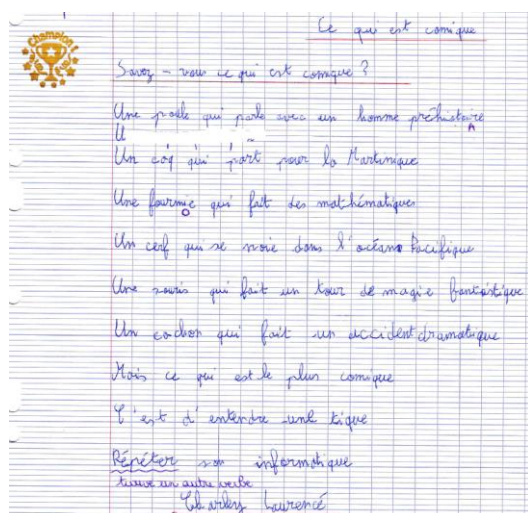 Champion!
Ce qui est comique
Savez-vous ce qui est comique ?
Une poule qui parle avec un homme préhistoire
U
Un coq qui part pour la Martinique
Une fourmie qui fait des mathématiques
Un cerf qui se noie dans l'océan Pacifique
Une souris qui fait un tour de magie fantastique
Un cochon qui fait un accident dramatique
Mais ce qui est le plus comique
C'est d'entendre une tique
Répéter son informatique
trouve un autre verbe
Charley Laurencé